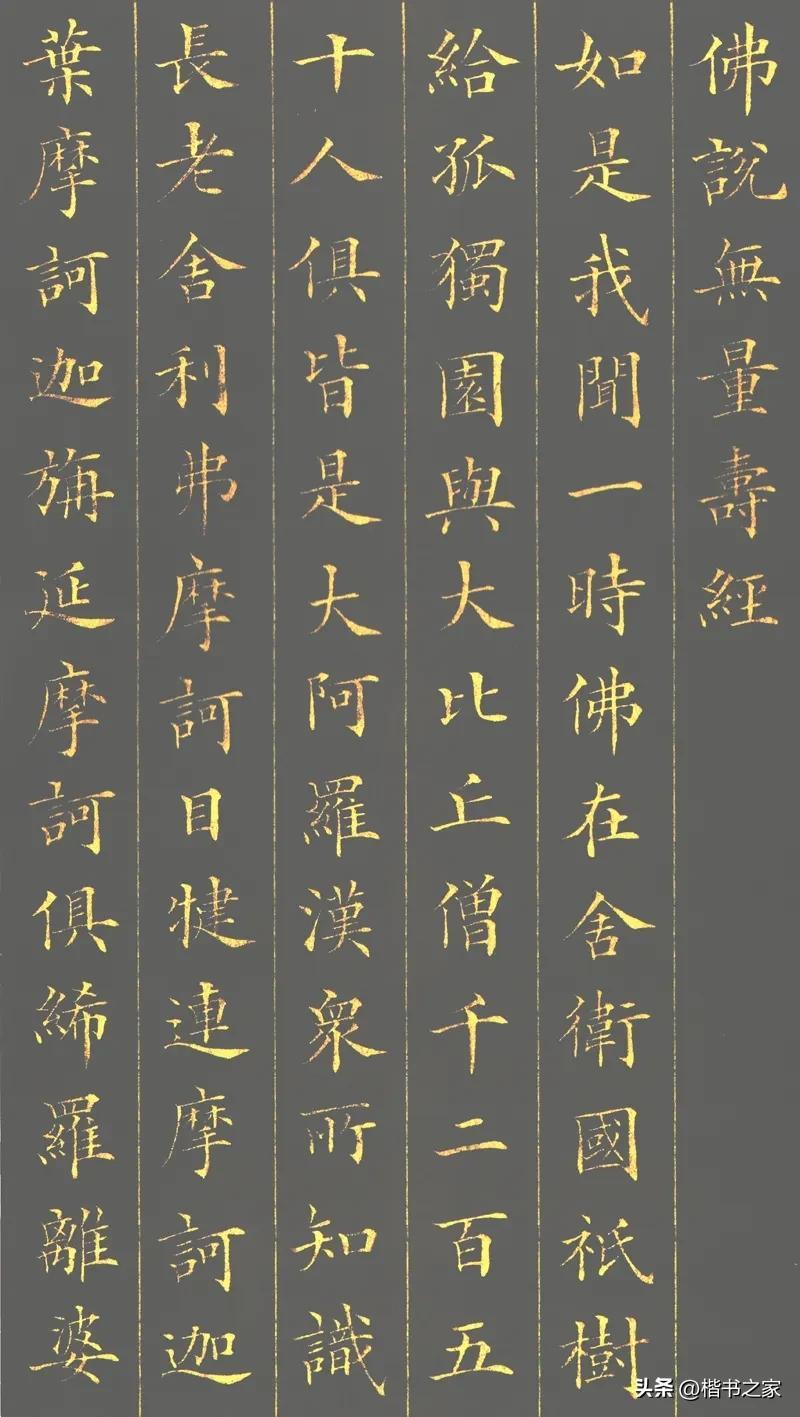 佛說無量壽經
如是我聞一時佛在舍衛國祇樹
給孤獨園與大比丘僧千二百五
十人俱皆是大阿羅漢眾所知識
長老舍利弗摩訶目犍連摩訶迦
葉摩訶迦旃延摩訶俱絺羅離婆
头条 @楷书之家